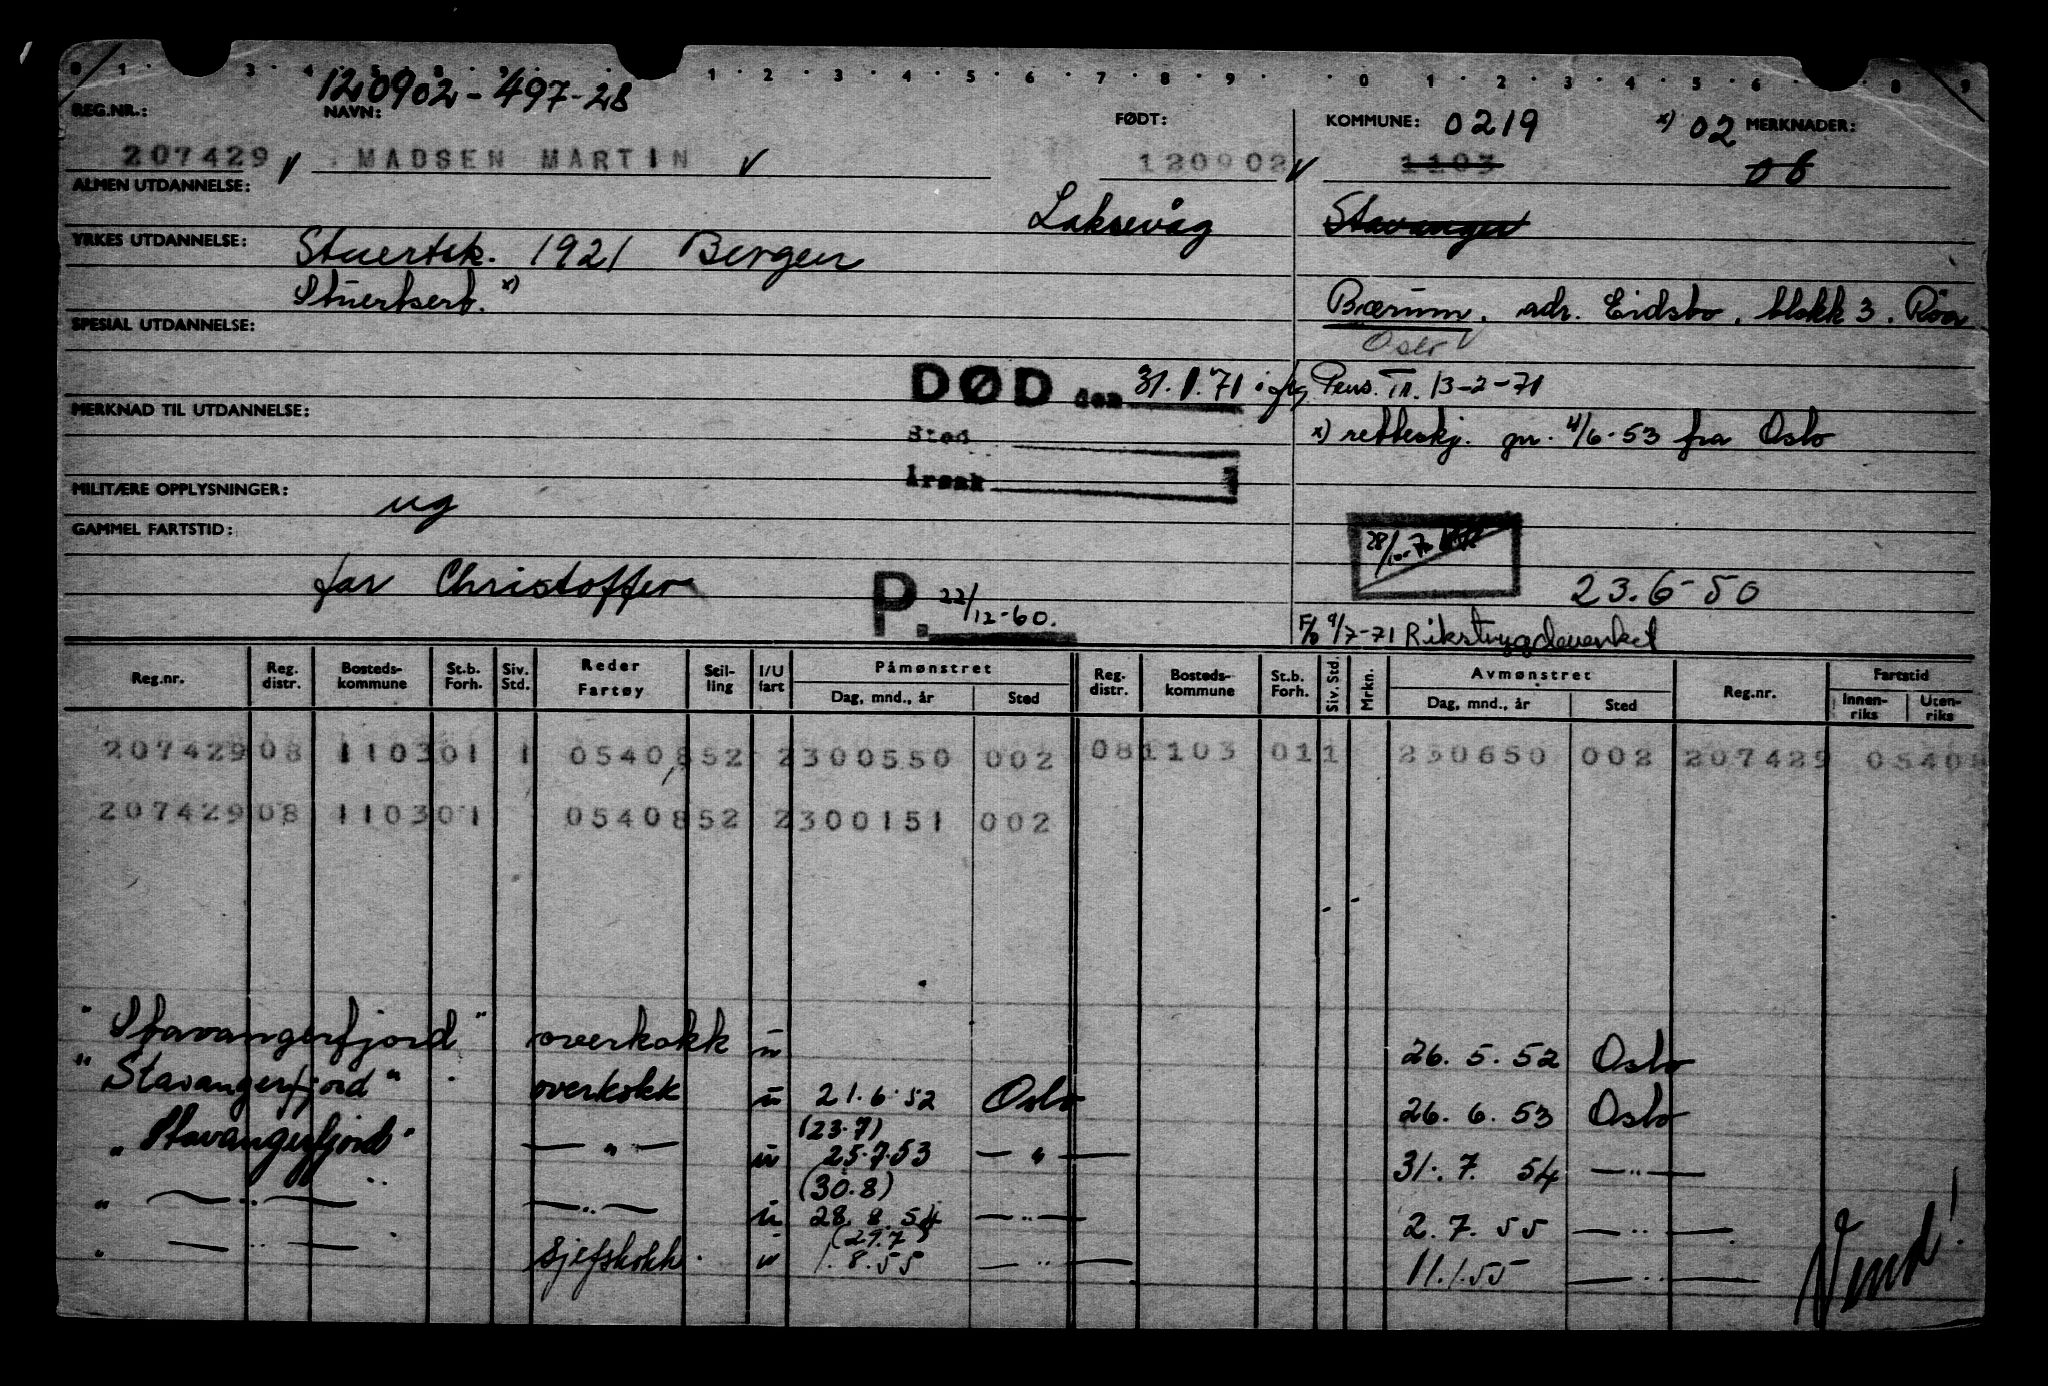 0 1 3 4 5 6 1 2 3 4 5 6 7 8 9 0 1 2 3 4 5 6 8 9
120902-497-28
REG.NR.: NAVN: FØDT: KOMMUNE: 0219 x) 02 MERKNADER:
207429 v MADSEN MARTIN v 120902 v 1103 06
ALMEN UTDANNELSE:
Laksevåg Stavanger
YRKES UTDANNELSE: Stuertsk. 1921 Bergen
Stuertsert. x) Bærum, adr. Eidsbo, blokk 3. Röa
SPESIAL UTDANNELSE: Oslo
DØD den 31.1.71 i flg. Pens. Tr. 13-2-71
MERKNAD TIL UTDANNELSE:
Sted x) retteskj. pr. 4/6-53 fra Oslo
Årsak
MILITÆRE OPPLYSNINGER: ug
GAMMEL FARTSTID:
far Christoffer P. 22/12-60. 23.6-50
9/7-71 Rikstrygdeverket
Reg.nr. Reg. distr. Bosteds-kommune St.b. Forh. Siv. Std. Reder Fartøy Stil-ling I/U fart Påmønstret Dag, mnd., år Sted Reg. distr. Bosteds-kommune St.b. Forh. Siv. Std. Mrkn. Avmønstret Dag, mnd., år Sted Reg.nr. Fartstid Innen-riks Uten-riks
207429 08 1103 01 1 0540852 2 300550 002 08 1103 01 1 230650 002 207429 0540
207429 08 1103 01 0540852 2 300151 002
"Stavangerfjord" overkokk u 26.5.52 Oslo
"Stavangerfjord" overkokk u 21.6.52 Oslo 26.6.53 Oslo
(23.7)
"Stavangerfjord" — " — u 25.7.53 — " — 31.7.54 — " —
(30.8)
" — " — " — " — u 28.8.54 — " — 2.7.55 — " —
(29.7)
" — " — " sjefskokk. u 1.8.55 — " — 11.1.55 — " —
Vend!